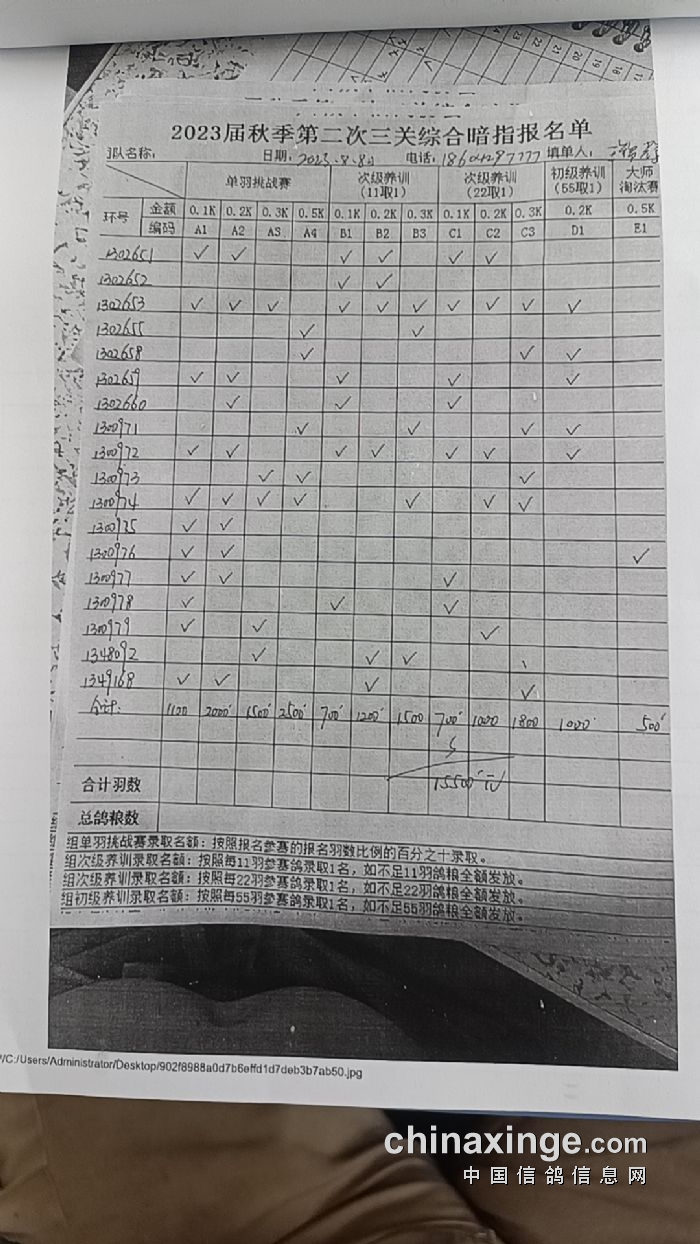 2023届秋季第二次三关综合暗指报名单
队名称: 日期: 2023.8.8日 电话: 填单人:
单羽挑战赛 次级养训 (11取1) 次级养训 (22取1) 初级养训 (55取1) 大师 淘汰赛
金额 0.1K 0.2K 0.3K 0.5K 0.1K 0.2K 0.3K 0.1K 0.2K 0.3K 0.2K 0.5K
环号 编码 A1 A2 A3 A4 B1 B2 B3 C1 C2 C3 D1 E1
1302651 ✓ ✓ ✓ ✓ ✓ ✓
1302652 ✓ ✓
1302653 ✓ ✓ ✓ ✓ ✓ ✓ ✓ ✓ ✓ ✓
1302655 ✓ ✓
1302658 ✓ ✓ ✓
1302659 ✓ ✓ ✓ ✓ ✓
1302660 ✓ ✓ ✓
1300971 ✓ ✓ ✓ ✓
1300972 ✓ ✓ ✓ ✓ ✓ ✓ ✓
1300973 ✓ ✓ ✓
1300974 ✓ ✓ ✓ ✓ ✓ ✓ ✓
1300975 ✓ ✓
1300976 ✓ ✓ ✓
1300977 ✓ ✓ ✓
1300978 ✓ ✓ ✓
1300979 ✓ ✓ ✓
1348092 ✓ ✓ ✓
1349168 ✓ ✓ ✓ ✓
合计: 1100 2000 1500 2500 700 1200 1500 700 1000 1800 1000 500
15500元
合计羽数
总鸽粮数
组单羽挑战赛录取名额：按照报名参赛的报名羽数比例的百分之十录取。
组次级养训录取名额：按照每11羽参赛鸽录取1名，如不足11羽鸽粮全额发放。
组次级养训录取名额：按照每22羽参赛鸽录取1名，如不足22羽鸽粮全额发放。
组初级养训录取名额：按照每55羽参赛鸽录取1名，如不足55羽鸽粮全额发放。
/C:/Users/Administrator/Desktop/902f8988a0d7b6effd1d7deb3b7ab50.jpg
chinaxinge.com
中国信鸽信息网